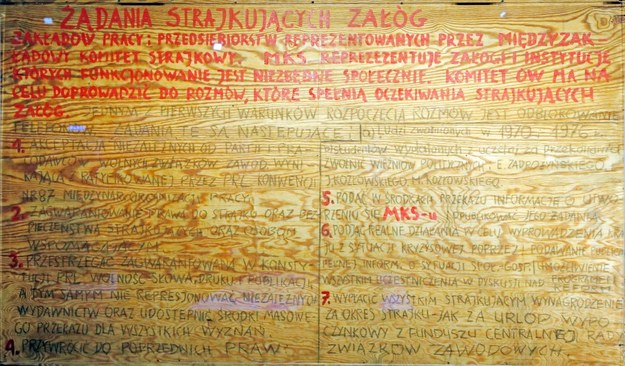 ŻĄDANIA STRAJKUJĄCYCH ZAŁÓG
ZAKŁADÓW PRACY I PRZEDSIĘBIORSTW REPREZENTOWANYCH PRZEZ MIĘDZYZAK
ŁADOWY KOMITET STRAJKOWY. MKS REPREZENTUJE ZAŁOGI I INSTYTUCJE
KTÓRYCH FUNKCJONOWANIE JEST NIEZBĘDNE SPOŁECZNIE. KOMITET ÓW MA NA
CELU DOPROWADZIĆ DO ROZMÓW, KTÓRE SPEŁNIĄ OCZEKIWANIA STRAJKUJĄCYCH
ZAŁÓG.
JEDNYM Z PIERWSZYCH WARUNKÓW ROZPOCZĘCIA ROZMÓW JEST ODBLOKOWANIE
ŻĄDANIA TE SĄ NASTĘPUJĄCE:
1. AKCEPTACJA NIEZALEŻNYCH OD PARTII I PRA
CODAWCÓW WOLNYCH ZWIĄZKÓW ZAWOD. WYNI
KAJĄCA Z RATYFIKOWANEJ PRZEZ PRL KONWENCJI
NR 87 MIĘDZYNAR. ORGANIZACJI PRACY
2. ZAGWARANTOWANIE PRAWA DO STRAJKU ORAZ BEZ
PIECZEŃSTWA STRAJKUJĄCYCH ORAZ OSOBOM
WSPOMAGAJĄCYM
3. PRZESTRZEGAĆ ZAGWARANTOWANĄ W KONSTY
TUCJI PRL WOLNOŚĆ SŁOWA, DRUKU I PUBLIKACJI,
A TYM SAMYM NIE REPRESJONOWAĆ NIEZALEŻNYCH
WYDAWNICTW ORAZ UDOSTĘPNIĆ ŚRODKI MASOWE
GO PRZEKAZU DLA WSZYSTKICH WYZNAŃ
4. PRZYWRÓCIĆ DO POPRZEDNICH PRAW:
a) ludzi zwolnionych w 1970 1976
studentów wydalonych z uczelni za przekonania
ZWOLNIĆ WIĘŹNIÓW POLITYCZNYCH E. ZADROŻYŃSKIEGO
J. KOZŁOWSKIEGO M. KOZŁOWSKIEGO
5. PODAĆ W ŚRODKACH PRZEKAZU INFORMACJE O UTWO
RZENIU SIĘ MKS-u I PUBLIKOWAĆ JEGO ŻĄDANIA
6. PODJĄĆ REALNE DZIAŁANIA W CELU WYPROWADZENIA KRA
JU Z SYTUACJI KRYZYSOWEJ POPRZEZ: PODAWANIE
PEŁNEJ INFORM. O SYTUACJI SPOŁ.-GOSP.
WSZYSTKIM UCZESTNICZENIA W DYSKUSJI NAD
REFORM
7. WYPŁACIĆ WSZYSTKIM STRAJKUJĄCYM WYNAGRODZENIE
ZA OKRES STRAJKU - JAK ZA URLOP WYPO
CZYNKOWY Z FUNDUSZU CENTRALNEJ RADY
ZWIĄZKÓW ZAWODOWYCH.